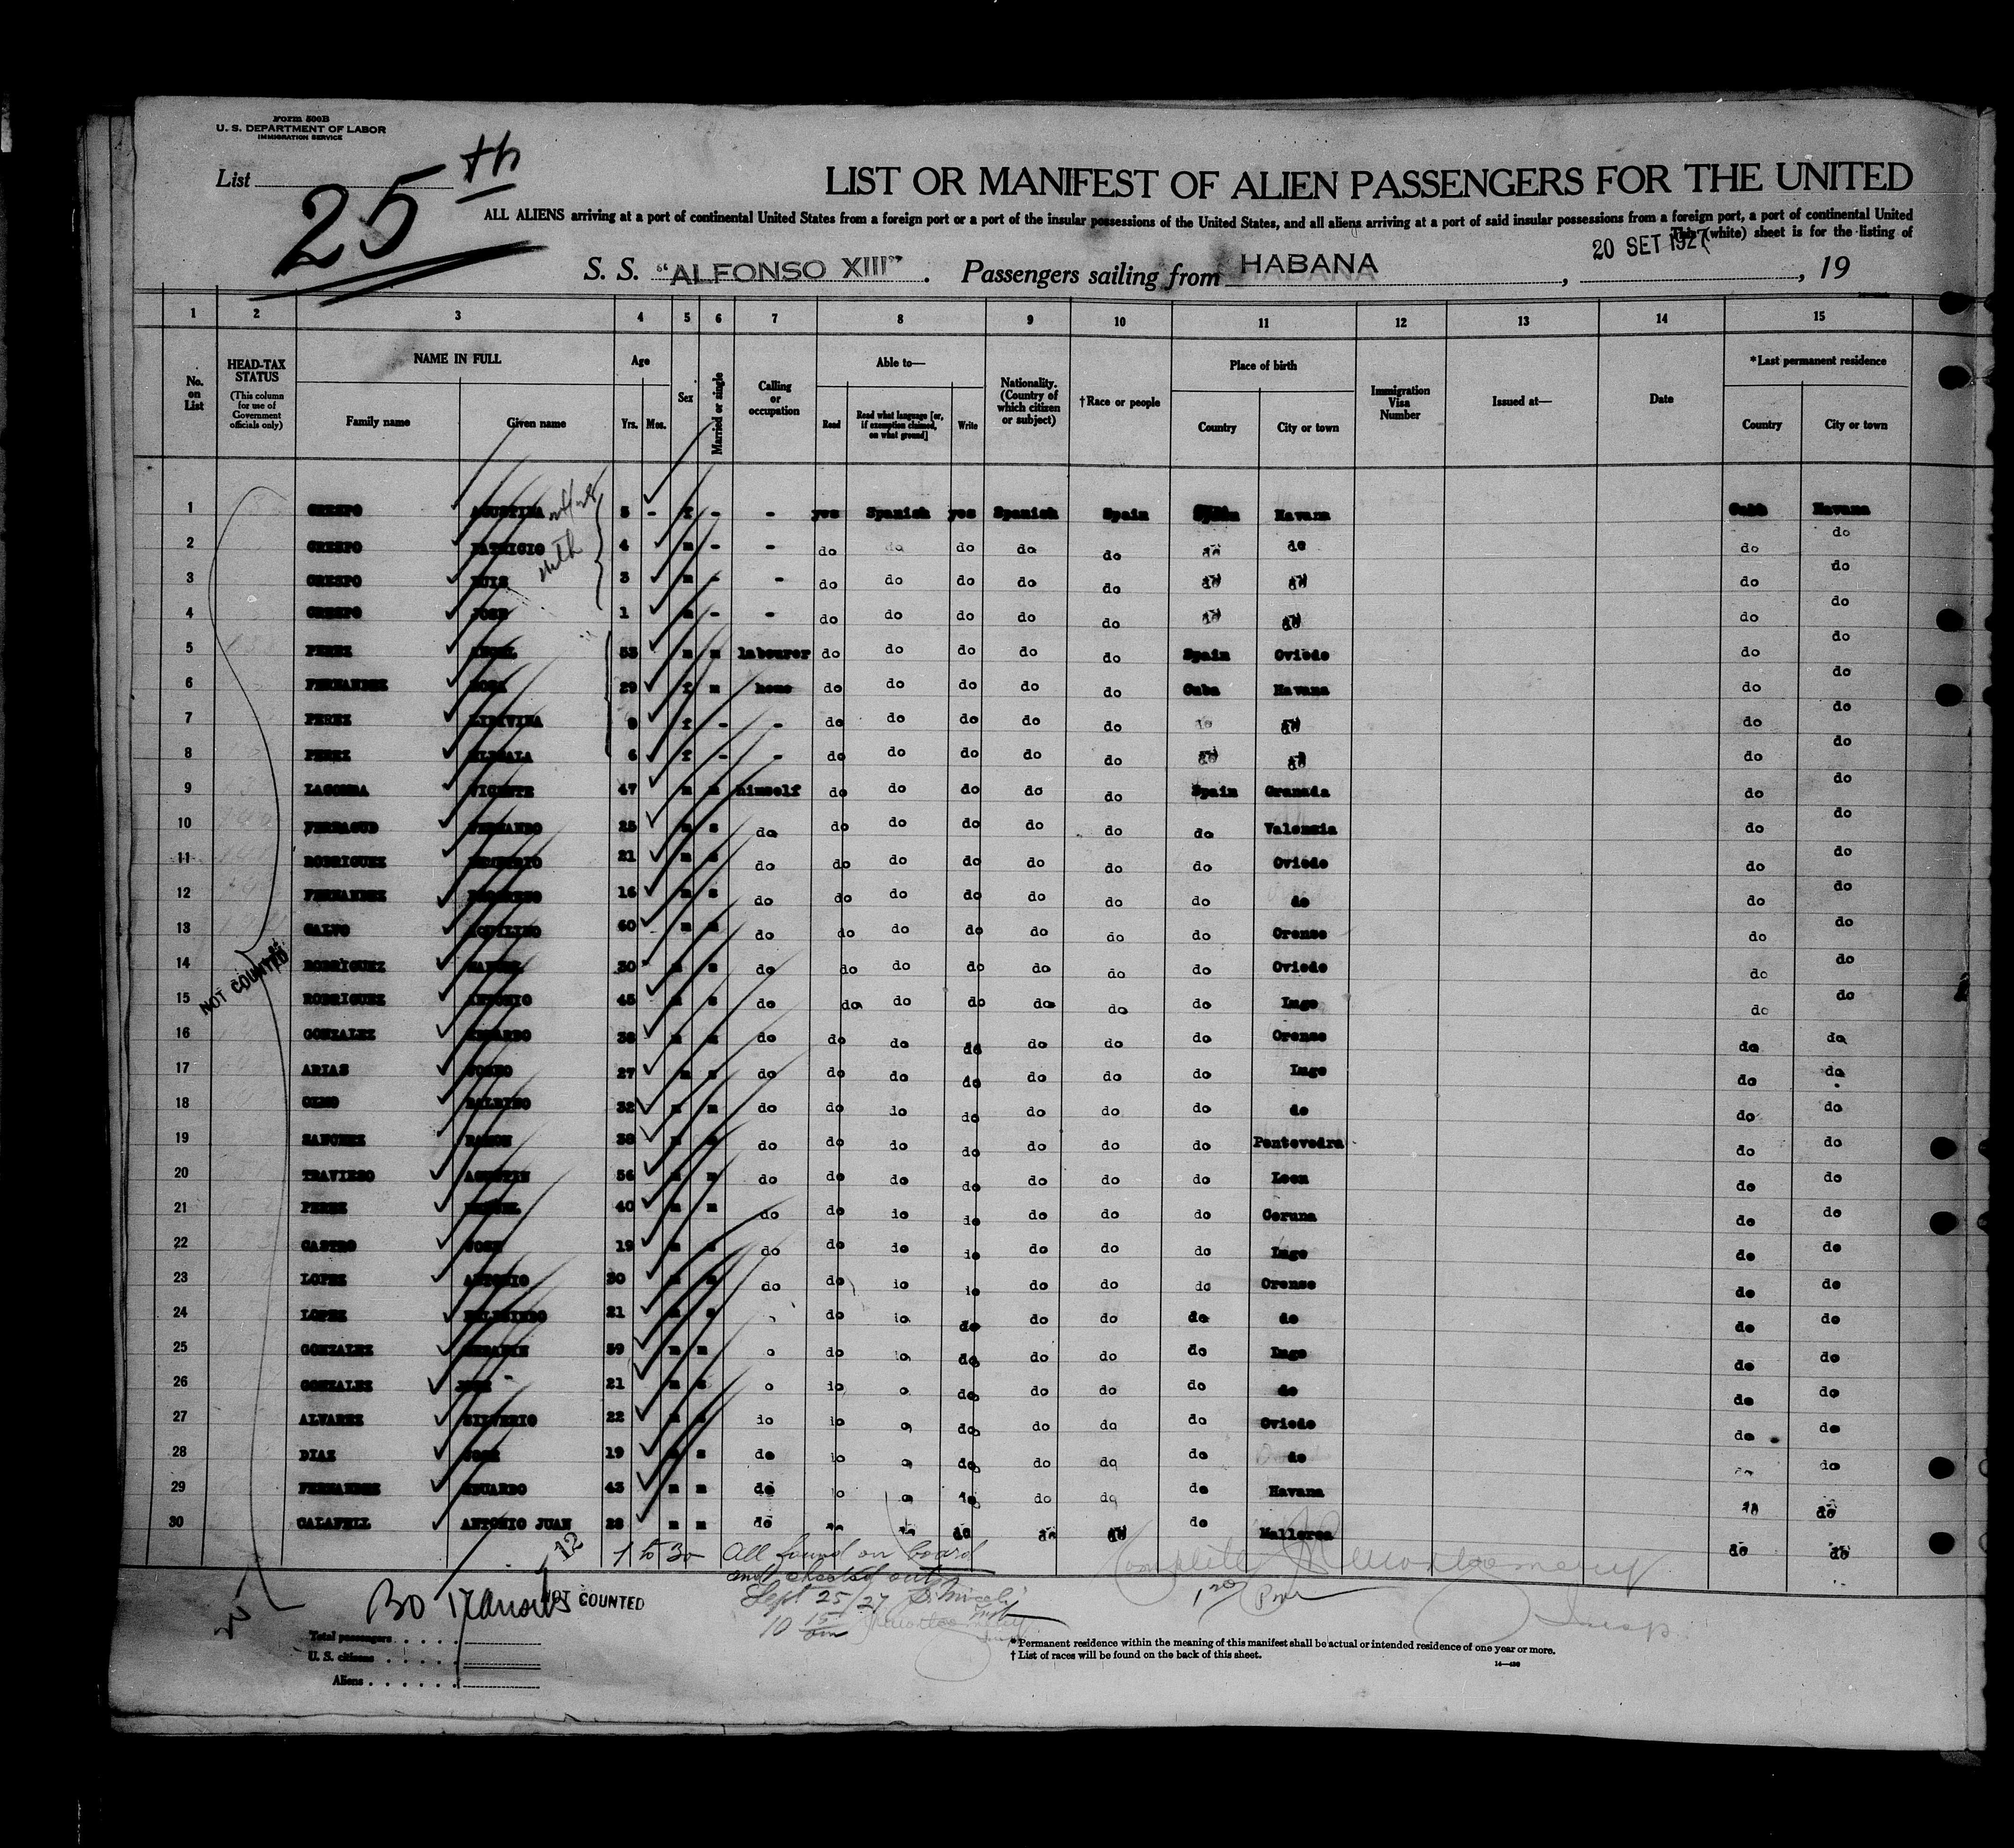 Form 500B
U. S. DEPARTMENT OF LABOR
IMMIGRATION SERVICE
List 25th
LIST OR MANIFEST OF ALIEN PASSENGERS FOR THE UNITED
ALL ALIENS arriving at a port of continental United States from a foreign port or a port of the insular possessions of the United States, and all aliens arriving at a port of said insular possessions from a foreign port, a port of continental United
This (white) sheet is for the listing of
S. S. "ALFONSO XIII". Passengers sailing from HABANA, 20 SET 1927, 19
1 2 3 4 5 6 7 8 9 10 11 12 13 14 15
No. on List
HEAD-TAX STATUS
(This column for use of Government officials only)
NAME IN FULL
Family name
Given name
Age
Yrs. Mos.
Sex
Married or single
Calling or occupation
Able to—
Read
Read what language [or, if exemption claimed, on what ground]
Write
Nationality. (Country of which citizen or subject)
†Race or people
Place of birth
Country
City or town
Immigration Visa Number
Issued at—
Date
*Last permanent residence
Country
City or town
1 CRESPO AGUSTINA 5 - f - - yes Spanish yes Spanish Spain Havana Cuba Havana
2 CRESPO PATRICIO 4 m - - do do do do do do do do do
3 CRESPO LUIS 3 m - - do do do do do do do do do
4 CRESPO JOSE 1 m - - do do do do do do do do do
5 PEREZ ANGEL 53 m m labourer do do do do do Spain Oviedo do do
6 FERNANDEZ ROSA 29 f m home do do do do do Cuba Havana do do
7 PEREZ 9 f - - do do do do do do do do do
8 PEREZ 6 f - - do do do do do do do do do
9 LACOMBA VICENTE 47 m m himself do do do do do Spain Granada do do
10 FERNANDO 25 m s do do do do do do do Valencia do do
11 RODRIGUEZ 21 m s do do do do do do do Oviedo do do
12 FERNANDEZ 16 m s do do do do do do do do do do
13 CALVO AQUILINO 60 m m do do do do do do do Orense do do
14 RODRIGUEZ MANUEL 30 m s do do do do do do do Oviedo do do
15 RODRIGUEZ ANTONIO 45 m s do do do do do do do Lugo do do
16 GONZALEZ 38 m m do do do do do do do Orense do do
17 ARIAS 27 m s do do do do do do do Lugo do do
18 OLMO BALBINO 32 m m do do do do do do do do do do
19 SANCHEZ RAMON 38 m do do do do do do do Pontevedra do do
20 TRAVIESO AGUSTIN 56 m m do do do do do do do Leon do do
21 PEREZ MANUEL 40 m m do do do do do do do Coruna do do
22 CASTRO JOSE 19 m s do do do do do do do Lugo do do
23 LOPEZ ANTONIO 30 m m do do do do do do do Orense do do
24 LOPEZ 21 m s do do do do do do do do do
25 GONZALEZ SERAFIN 39 m m do do do do do Lugo do do
26 GONZALEZ JOSE 21 m s do do do do do do do do
27 ALVAREZ SILVERIO 22 m do do do do do do Oviedo do do
28 DIAZ JOSE 19 m s do do do do do do do do
29 FERNANDEZ EDUARDO 43 m m do do do do do do Havana do do
30 CALAFELL ANTONIO JUAN 28 m m do do do do do Mallorca do do
NOT COUNTED
12
1 to 30 All found on board
and checked out
Sept 25/27
10 15 am
Complete
1 20 Pm
Insp.
30 Transits NOT COUNTED
Total passengers
U. S. citizens
Aliens
* Permanent residence within the meaning of this manifest shall be actual or intended residence of one year or more.
† List of races will be found on the back of this sheet.
14—430